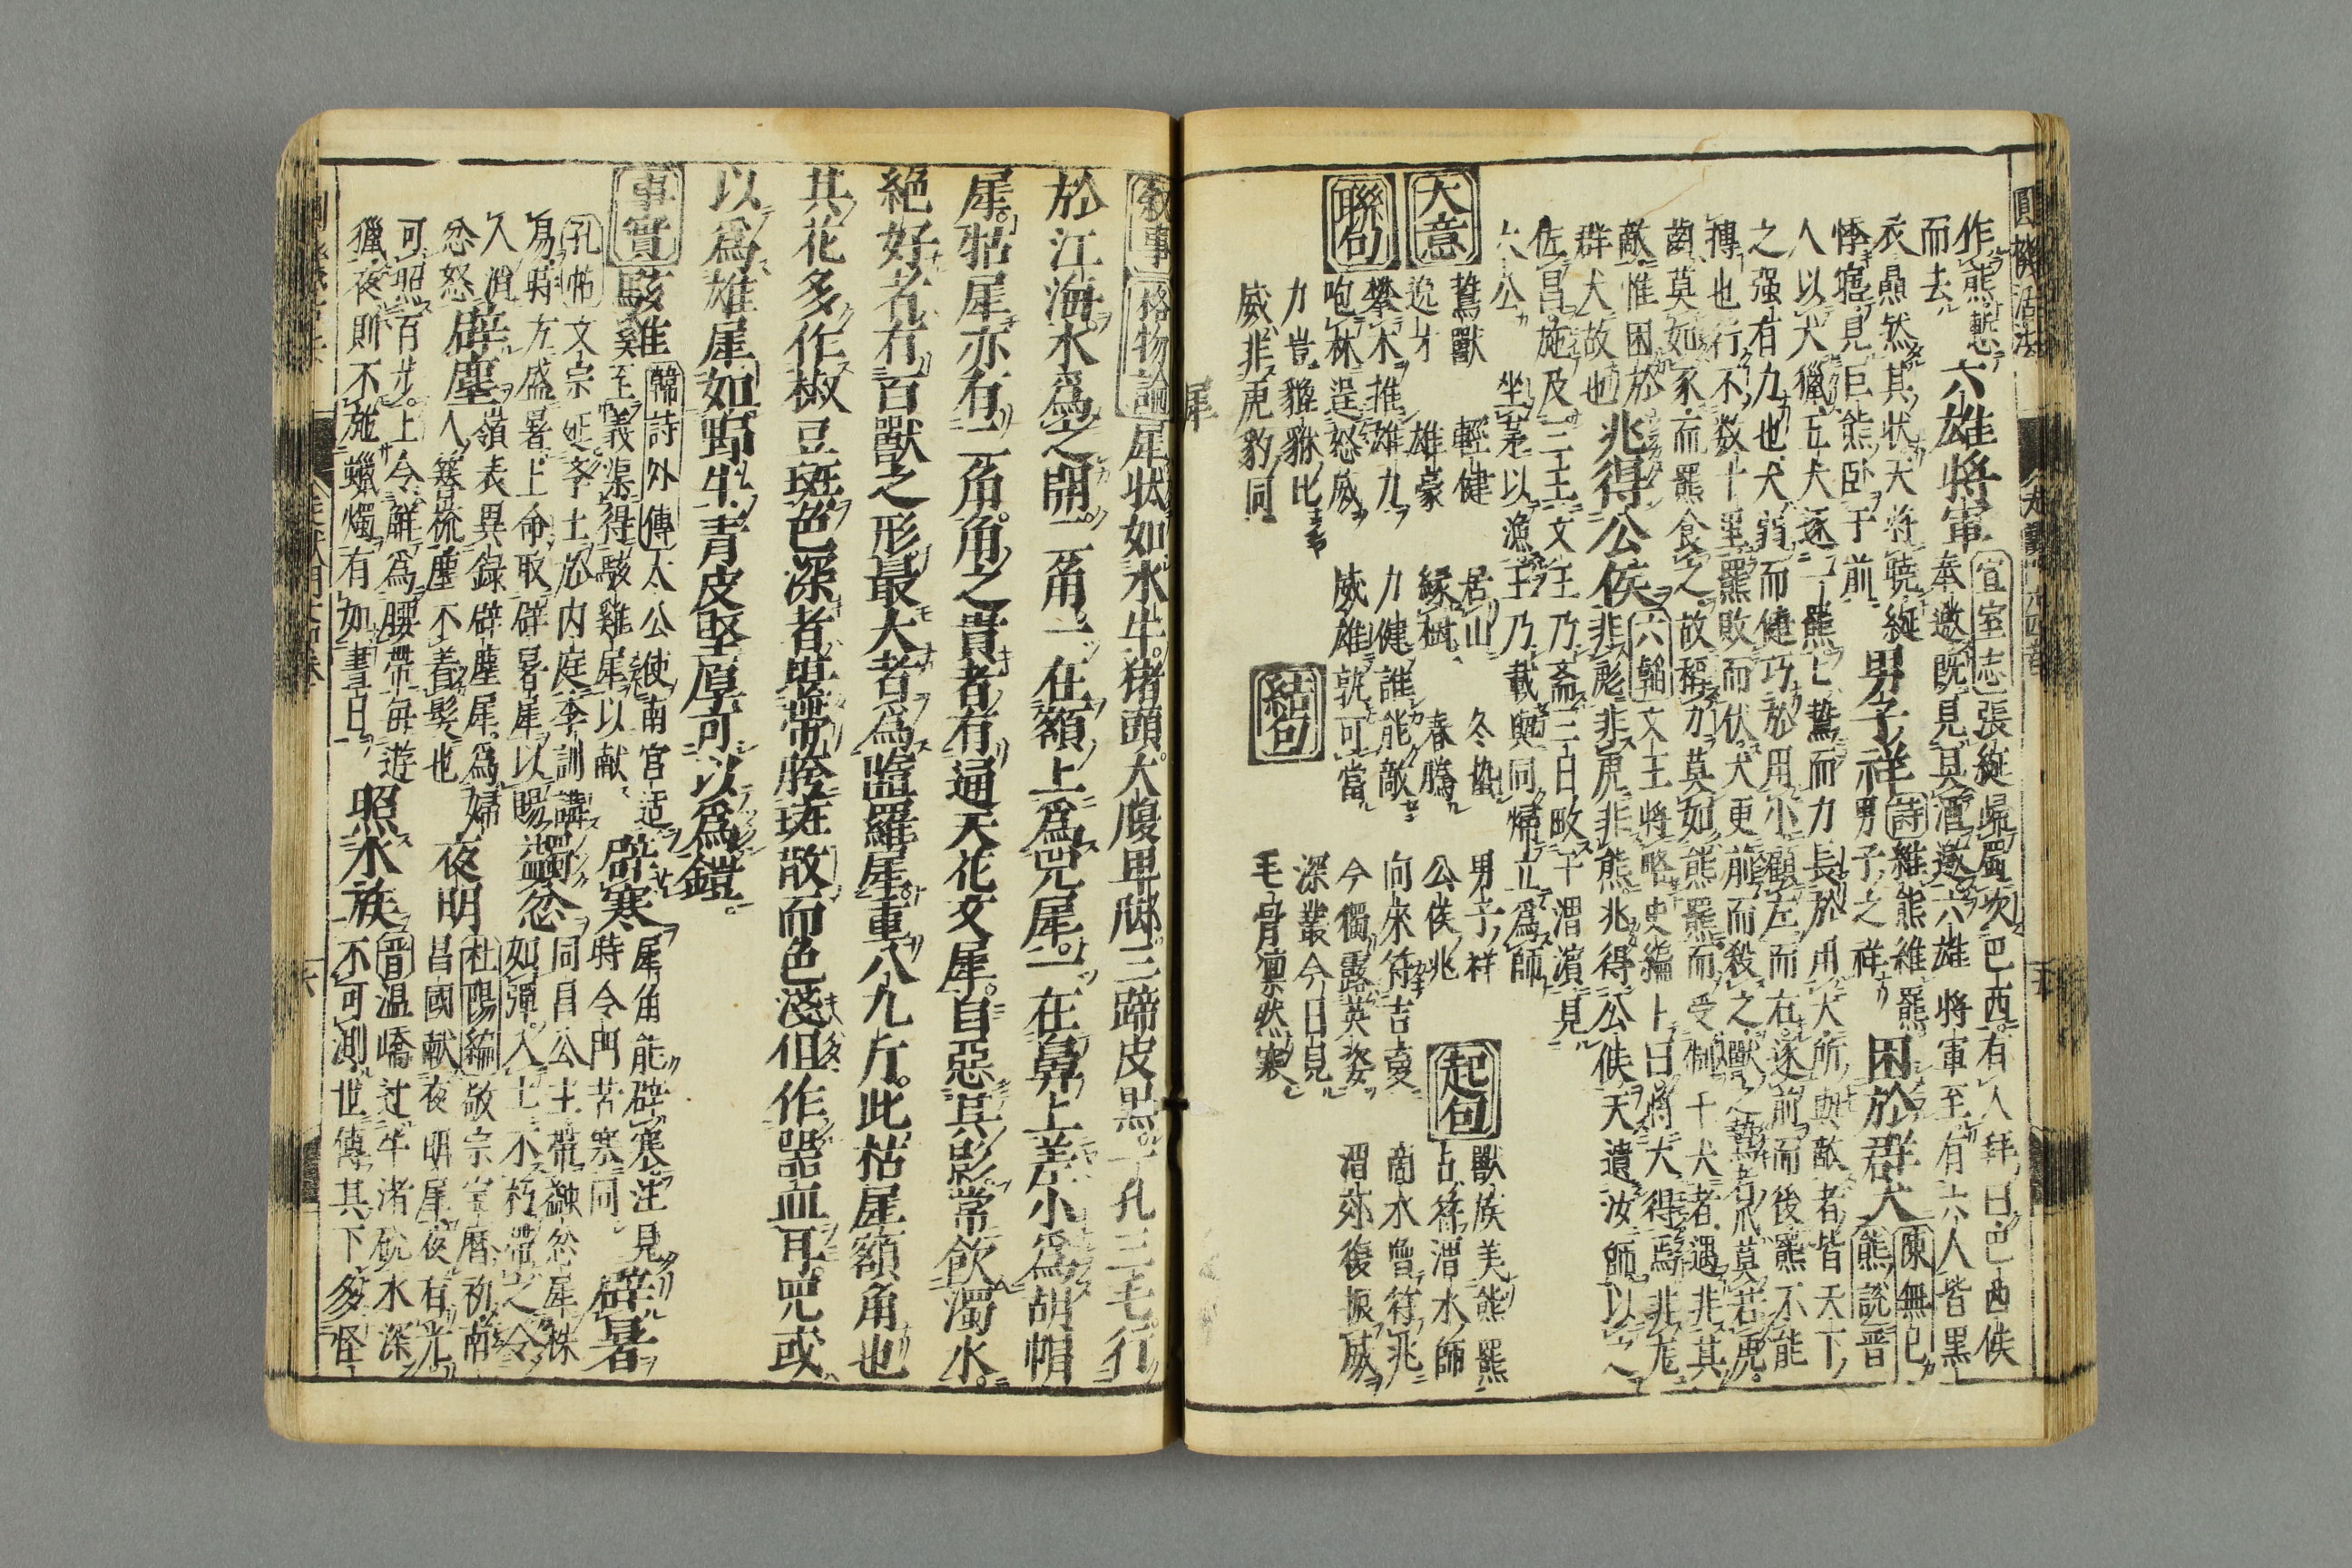 圓機活法
作熊慙
而去
六雄將軍
宣室志張綖歸蜀次巴西有人拜曰巴西侯
奉邀既見其酒邀六雄將軍至有六人皆黑
衣然其狀大將曉綖
悸寤見巨熊卧于前
男子祥
詩維熊維羆
男子之祥
困於群犬
陳無已
熊說晋
人以犬獵五犬逐一熊亡驚而力長於用大所與敵者皆天下
之强有力也犬弱而健巧於用小顧左而右逐前而後羆不能
搏也行不數十里羆敗而伏犬更前而殺之獸之摯者爪莫若虎
齒莫如豕而羆食之故稱力莫如熊羆而受制于犬者遇非其
敵惟困於
群犬故也
兆得公侯
六韜文王將畋史編卜曰將大得焉非尨
非彪非虎非熊兆得公侯天遺汝師以之
佐昌施及三王文王乃斎三日畋于渭濱見
公坐茅以漁王乃載與同歸立爲師
大意
驁獸 輕健 居山 冬蟄 男子祥
逸才 雄豪 縁樹 春騰 公侯兆
起句
獸族美熊羆
占符渭水師
啇水曾符兆
渭復振威
聯句
攀木推雄力 力健誰能敵 向來符吉夣
咆林逞怒威 威雄孰可當 今獨露英姿
力豈貅比
威非虎豹同
結句
深叢今日見
毛骨凛然寒
犀
叙事 格物論 犀状如水牛猪頭大腹卑脚三蹄皮黒一孔三毛行
於江海水爲之開二角一在額上爲兕犀一在鼻上差小爲胡帽
犀牯犀亦有二角角之貴者有通天花文犀自惡其影常飲濁水
絶好者有百獸之形最大者爲䧟羅犀重八九斤此牯犀額角也
其花多作椒豆斑色深者堪帶胯斑散而色淺但作器皿耳兕或
以爲雄犀如野牛青皮堅厚可以爲鎧
事實
駭雞
韓詩外傳太公使南宮适
至義渠得駭雞犀以献
辟寒
犀角能辟寒注見
時令門苦寒同
辟暑
孔帖文宗延李士於内庭李訓講
易時方盛暑上命取辟暑犀以賜
蠲忿
同昌公主帶蠲忿犀株
如彈入土不朽帶之令
人消
忿怒
辟塵
嶺表異錄辟塵犀爲婦
人簪梳塵不着髮也
夜明
杜陽編敬宗宝曆初南
昌國献夜明犀夜有光
可照百步上令解爲腰帶每遊
獵夜則不施蠟燭有如晝日
照水族
晋温嶠过牛渚磯水深
不可測世傳其下多怪
六